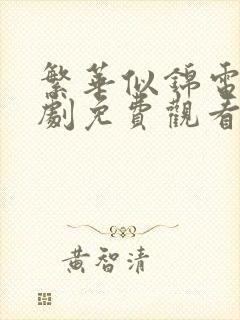 繁華似錦電
劇免費觀看
黃智清